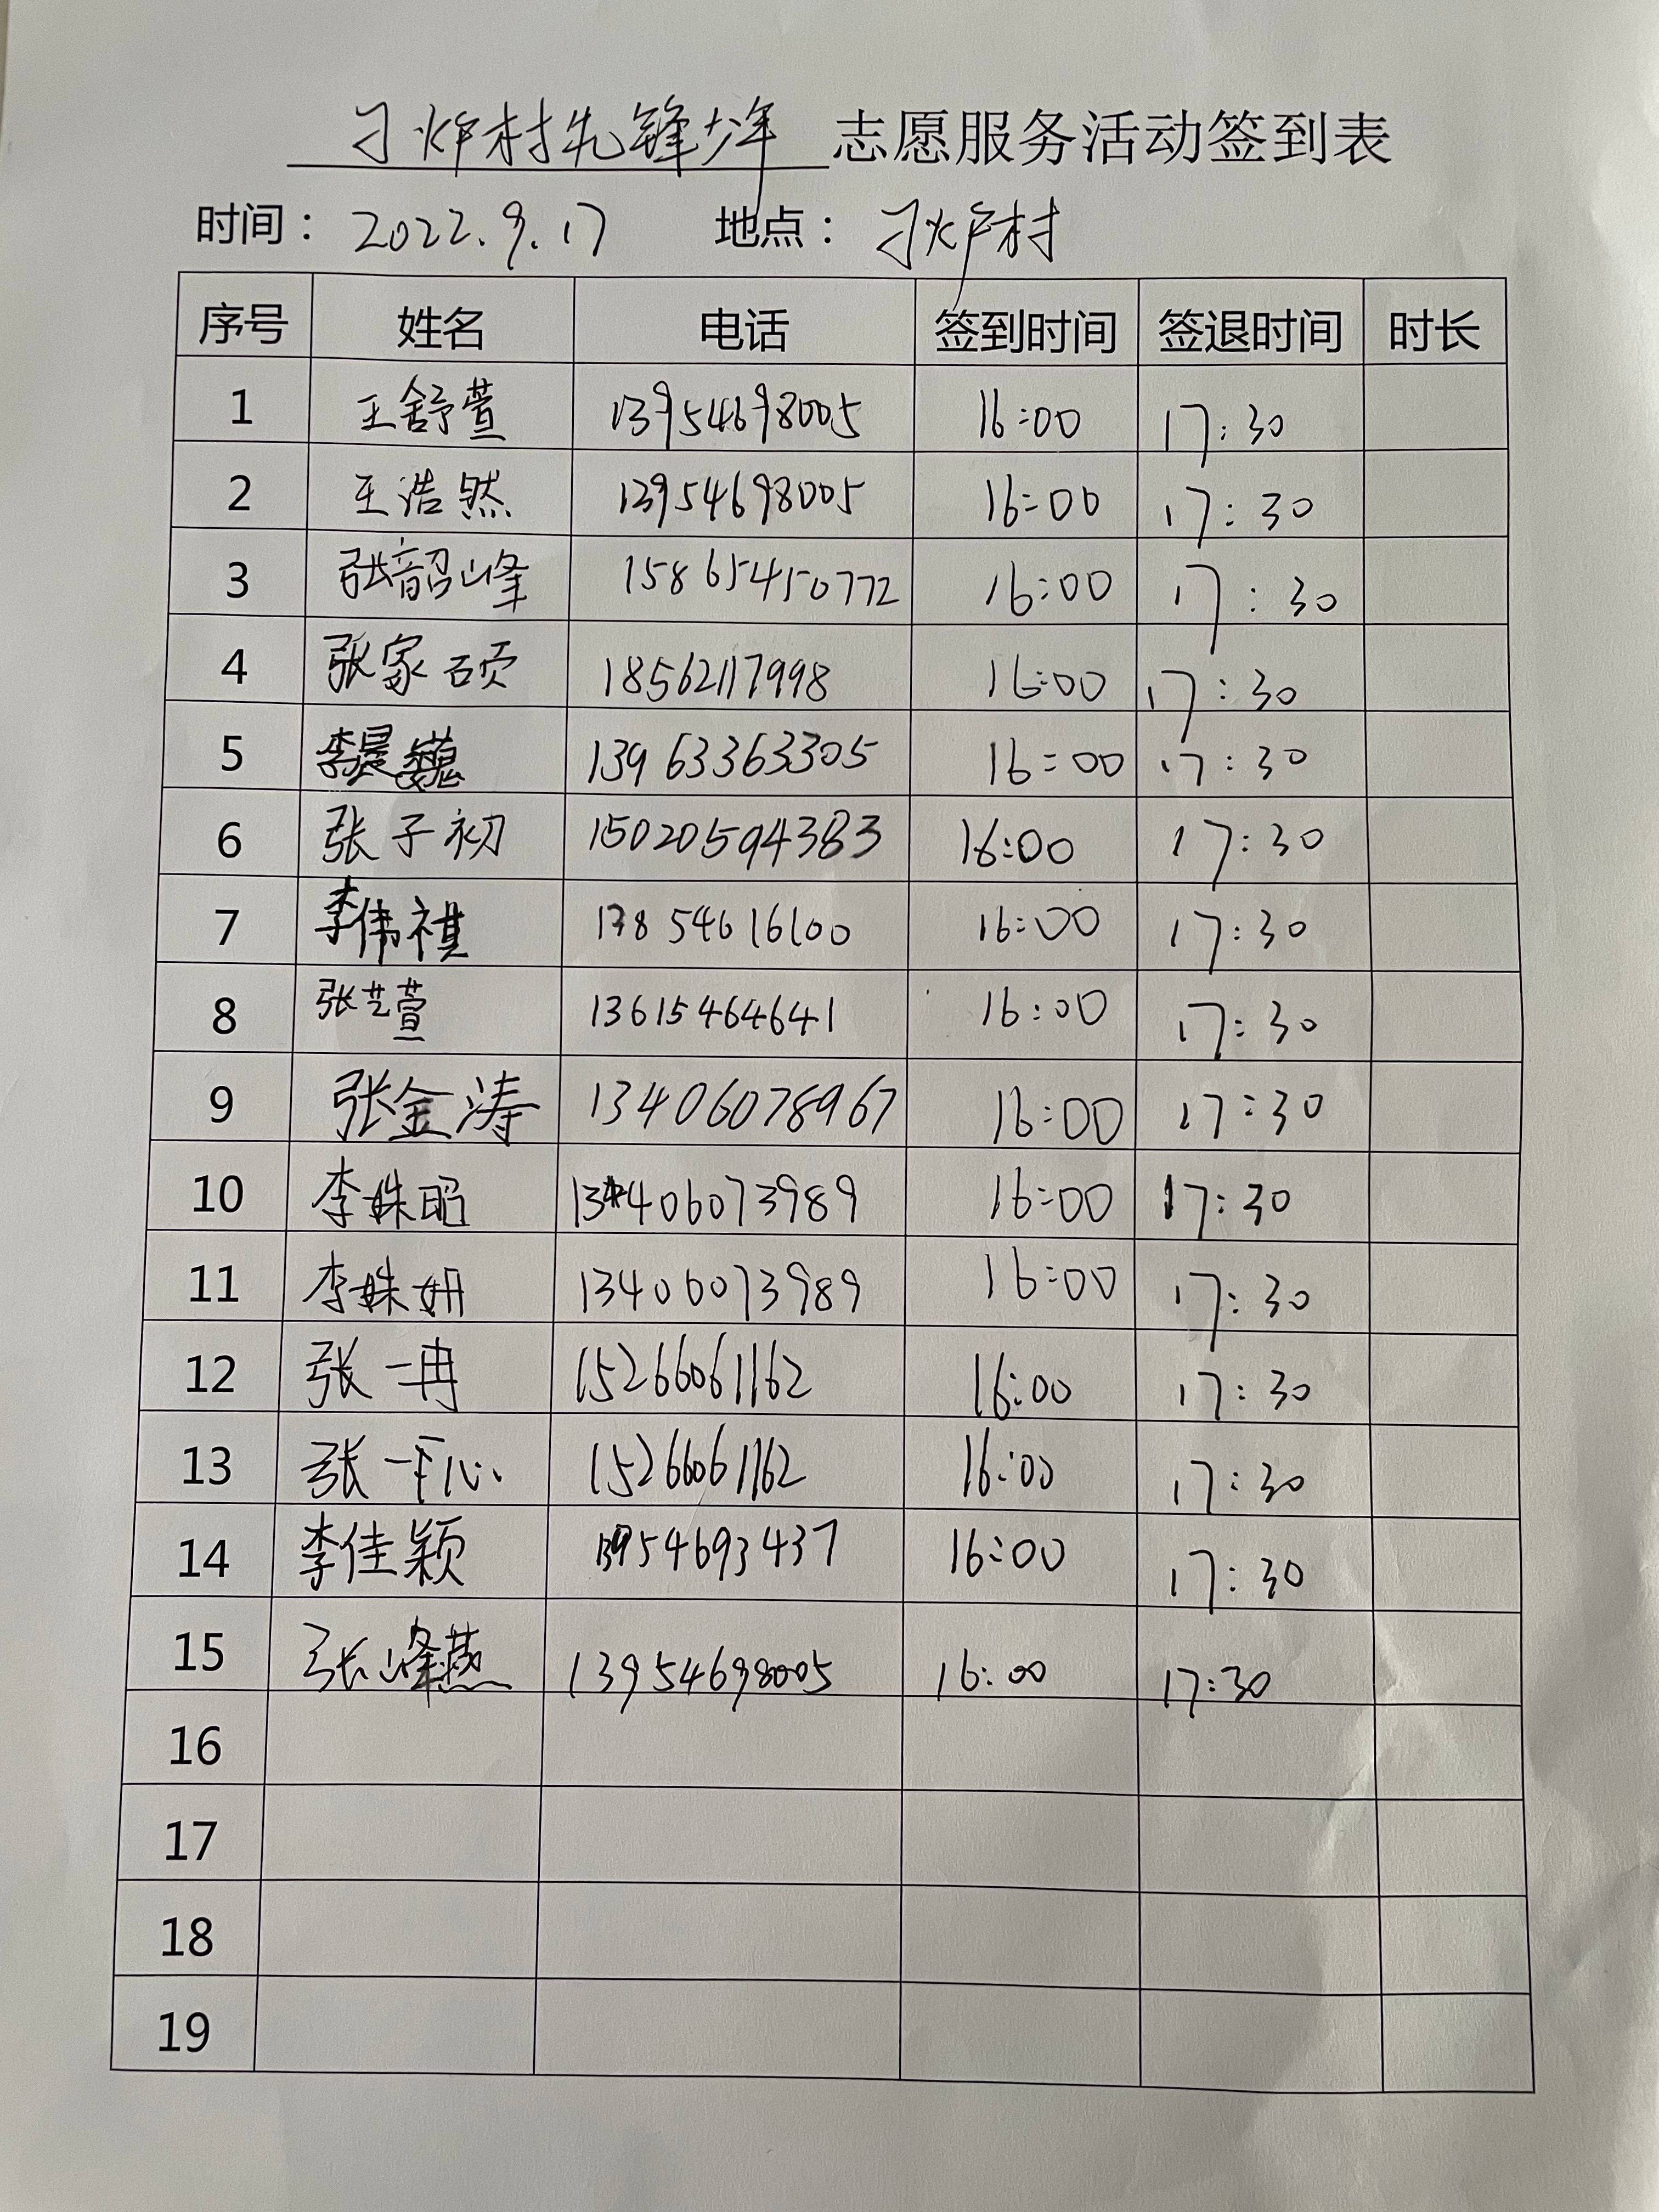 刁炉村先锋少年志愿服务活动签到表
时间：2022.9.17 地点：刁炉村
序号 姓名 电话 签到时间 签退时间 时长
1 王舒萱 13954698005 16:00 17:30
2 王浩然 13954698005 16:00 17:30
3 张韶峰 15865450772 16:00 17:30
4 张家硕 18562117998 16:00 17:30
5 李晨巍 13963363305 16:00 17:30
6 张子初 15020594383 16:00 17:30
7 李伟祺 17854616100 16:00 17:30
8 张艺萱 13615464641 16:00 17:30
9 张金涛 13406078967 16:00 17:30
10 李姝昭 13406073989 16:00 17:30
11 李姝妍 13406073989 16:00 17:30
12 张一冉 15266061162 16:00 17:30
13 张一 15266061162 16:00 17:30
14 李佳颖 13954693437 16:00 17:30
15 张峰燕 13954698005 16:00 17:30
16
17
18
19